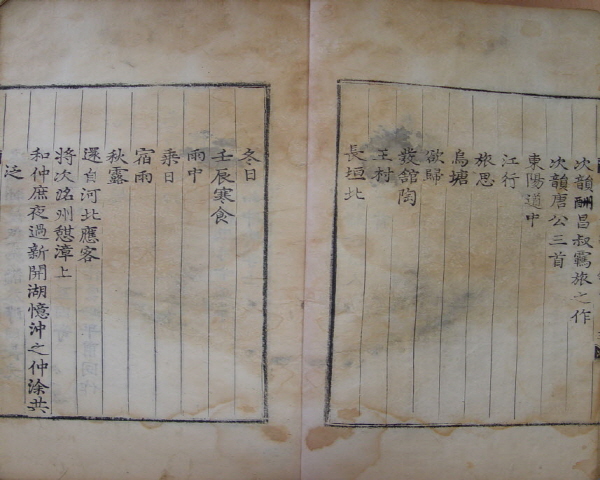 次韻酬昌叔羈旅之作
次韻唐公三首
東陽道中
江行
旅思
烏塘
欲歸
發舘陶
王村
長垣北
冬日
壬辰寒食
雨中
乘日
宿雨
秋露
還自河北應客
將次洺州憇漳上
和仲庶夜過新開湖憶沖之仲涂共
泛